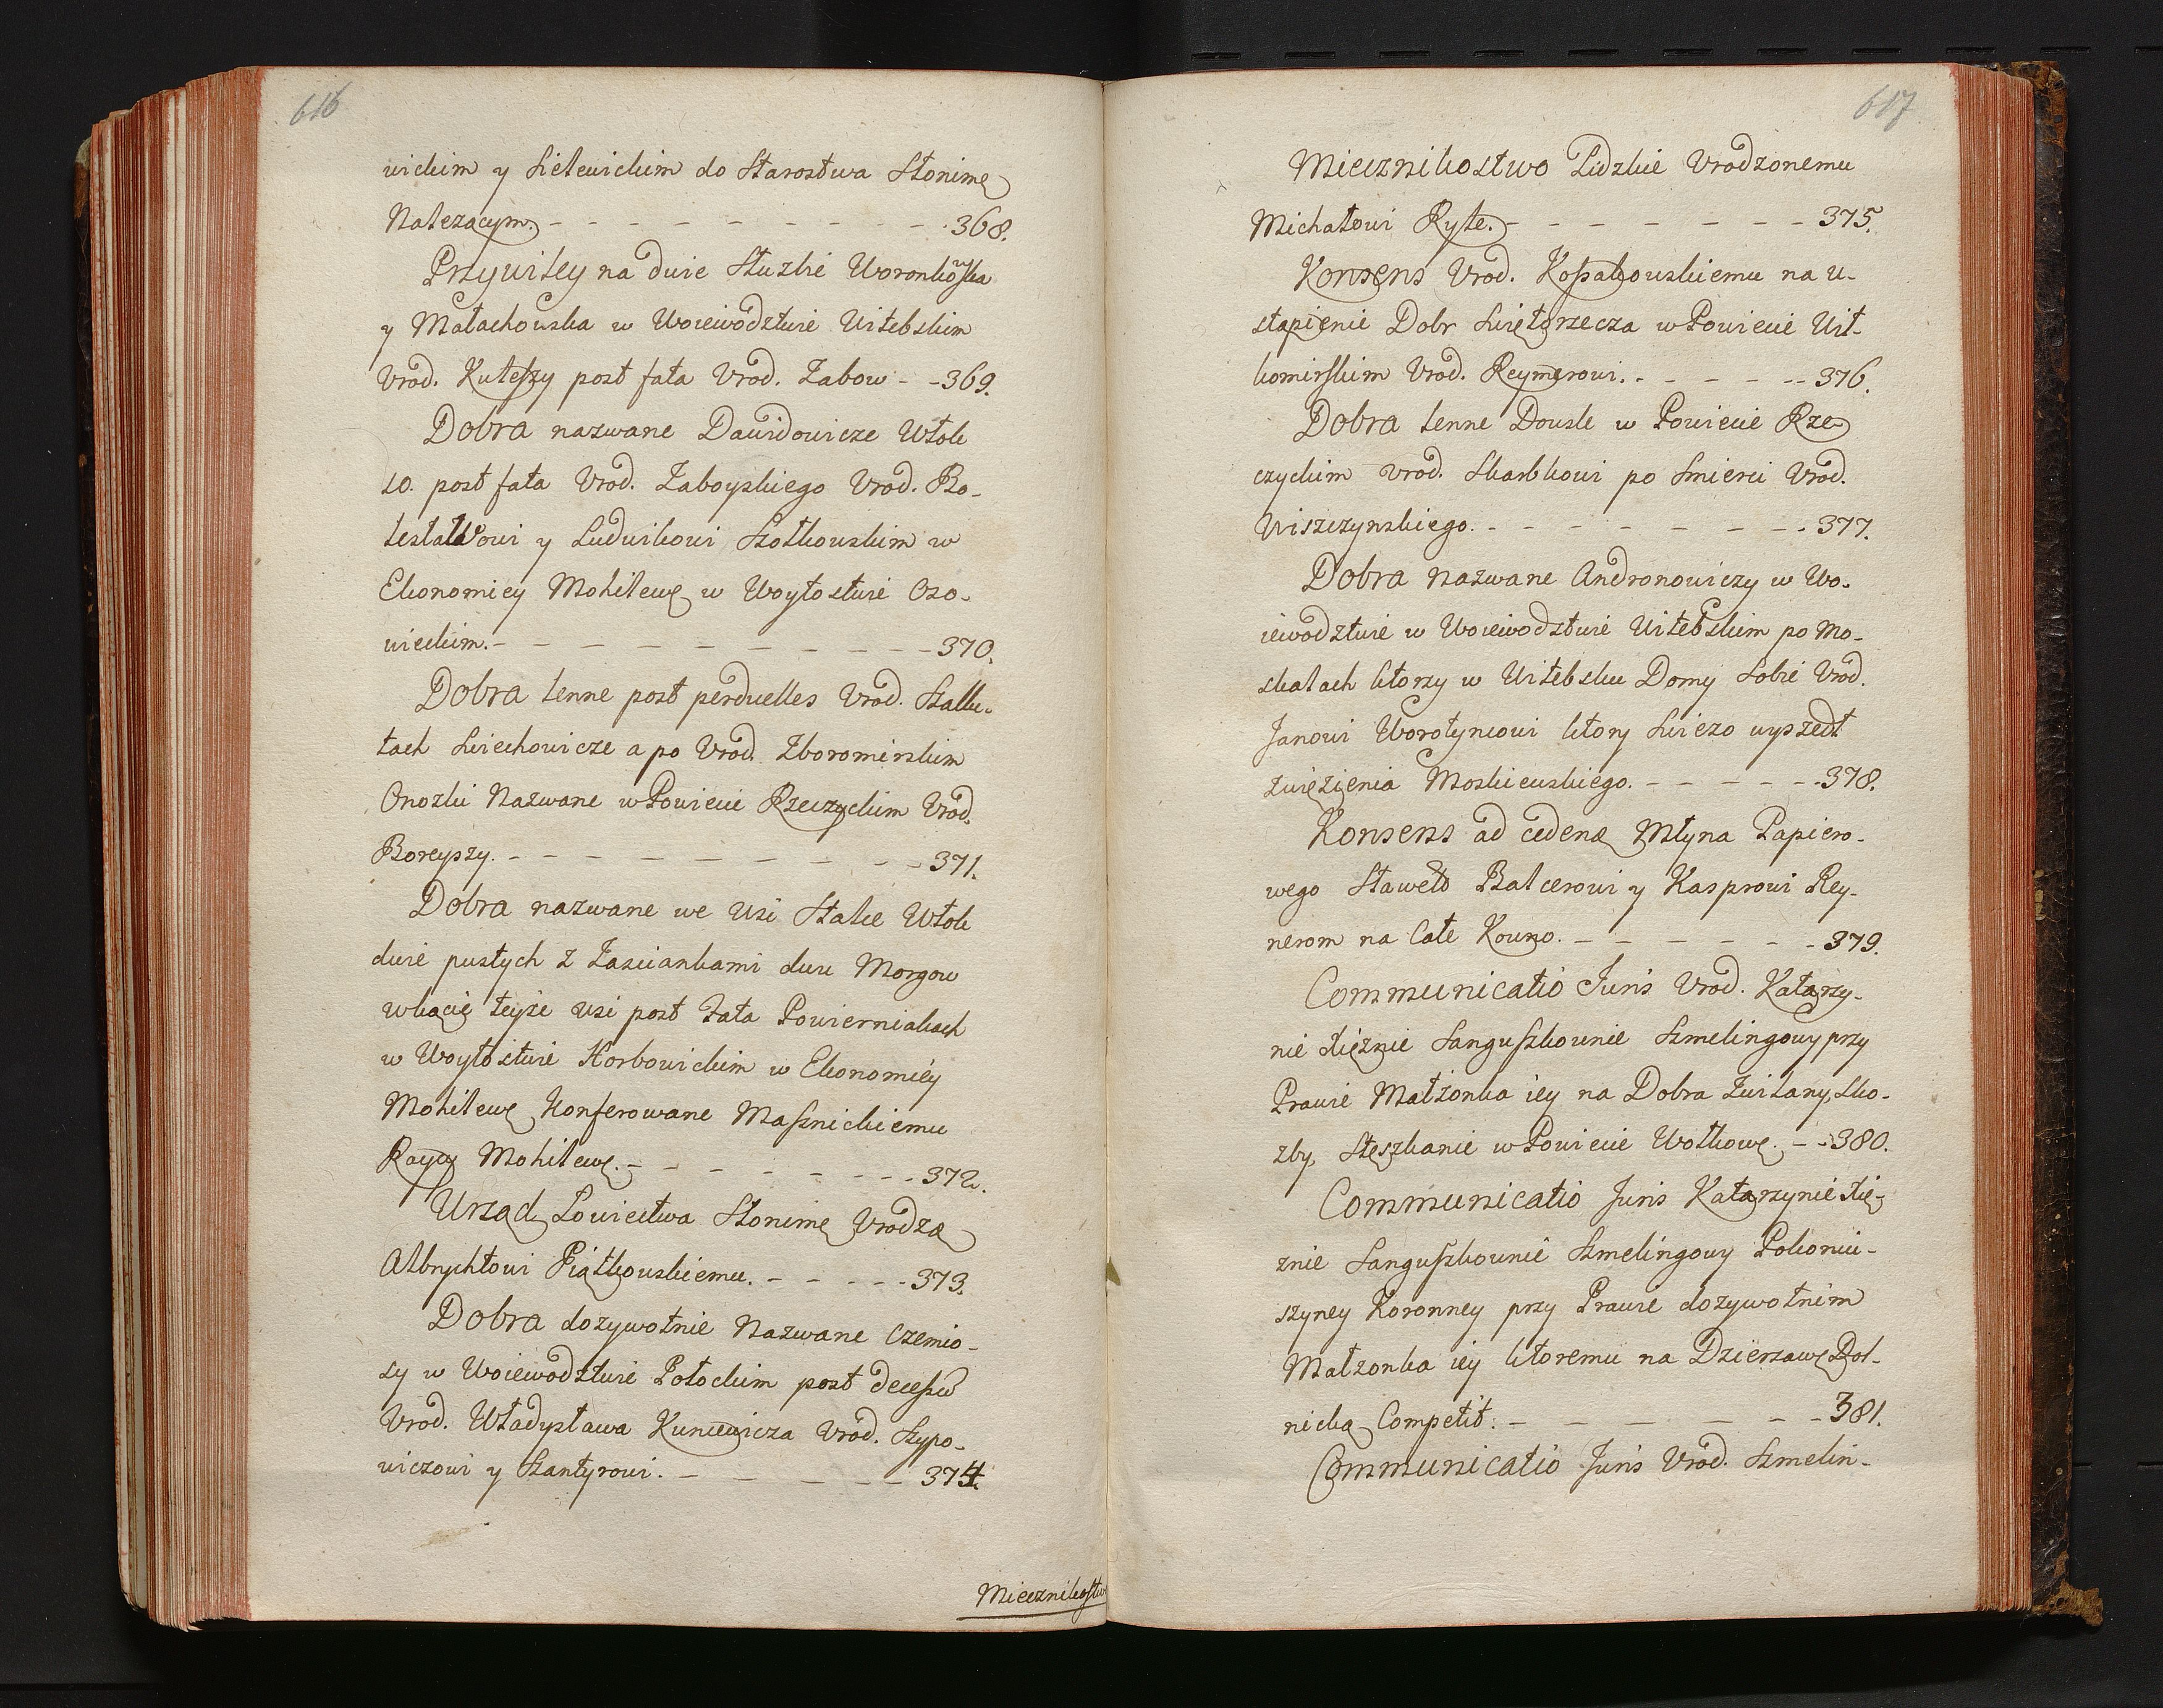 616
wickim y Sielewickim do Starostwa Słonimę
Należącym. 368.
Przywiley na dwie Służbie Woronkowska
y Małachowska w Woiewodztwie Witebskim
Vrod. Kuleszy post fata Vrod. Zabow 369.
Dobra nazwane Dawidowicze Włok
10. post fata Vrod. Zaboyskiego Vrod. Bo-
lesławowi y Ludwikowi Szołkowskim w
Ekonomiey Mohilewę w Woytostwie Ozo-
wieckim. 370.
Dobra lenne post perduelles Vrod. Szallu-
tach Swiechowicze a po Vrod. Zboromirskim
Onoszki Nazwane w Powiecie Rzeczyckim Vrod.
Boreyszy. 371.
Dobra nazwane we Wsi Stalce Włok
dwie pustych z Zasciankami dwu Morgow
w kącie teyże wsi post Fata Powierniakach
w Woytostwie Horbowickim w Ekonomiéy
Mohilewę Konferowane Masznickiemu
Raycy Mohilewę. 372.
Urząd Łowiectwa Słonimę Vrodzę
Albrychtowi Piątkowskiemu. 373.
Dobra dożywotnie Nazwane Czemio-
ły w Woiewodztwie Połockim post decessū
Vrod. Władysława Kuncewicza Vrod. Szypo-
wiczowi y Szantyrowi. 374.
Miecznikostwo
617
Miecznikostwo Lidzkie Vrodzonemu
Michałowi Ryłę. 375.
Konsens Vrod. Kossakowskiemu na u-
stąpienie Dobr Swiętorzecza w Powiecie Wił-
komirskim Vrod. Reymerowi. 376.
Dobra lenne Dowsk w Powiecie Rze-
czyckim Vrod. Skarbkowi po Smierci Vrod.
Wiszczynskiego. 377.
Dobra Nazwane Andronowiczy w Wo-
iewodztwie w Woiewodstwie Witebskim po Mo-
skalach ktorzy w Witebsku Domy Sobie Vrod.
Janowi Worotyncowi ktory Swiezo wyszedł
zwięzienia Moskiewskiego. 378.
Konsens ad cedenę Młyna Papiero-
wego Stawetō Balcerowi y Kasprowi Rey-
nerom na Całe Kowno. 379.
Communicatio Juris Vrod. Katarzy-
nie Xiężnie Sanguszkownie Szmelingowy przy
Prawie Małżonka iey na Dobra Zwilany, Sko-
zby, Stęszkanie w Powiecie Wołkowę. 380.
Communicatio Juris Katarzynie Xię-
znie Sanguszkownie Szmelingowy Pokoniu-
szyney Koronney przy Prawie dożywotnim
Małżonka iey ktoremu na Dzierzawę Dol-
nicką Competit: 381.
Communicatio Juris Vrod. Szmelin-